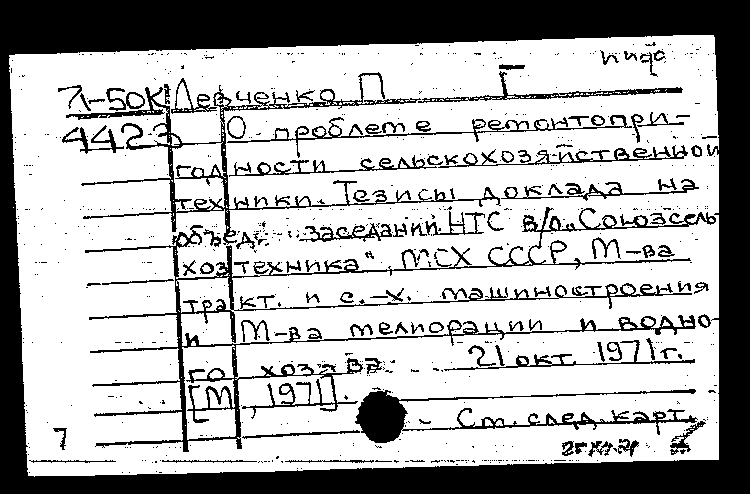 Л-50К Левченко П Г
4423 О проблеме ремонтопри-
годности сельскохозяйственной
техники. Тезисы доклада на
объед. заседании НТС в/о „Союзсель-
хозтехника", МСХ СССР, М-ва
тракт. и с.-х. машиностроения
и М-ва мелиорации и водно-
го хоз-ва 21 окт 1971г.
[М, 1971].
7 - См. след. карт.